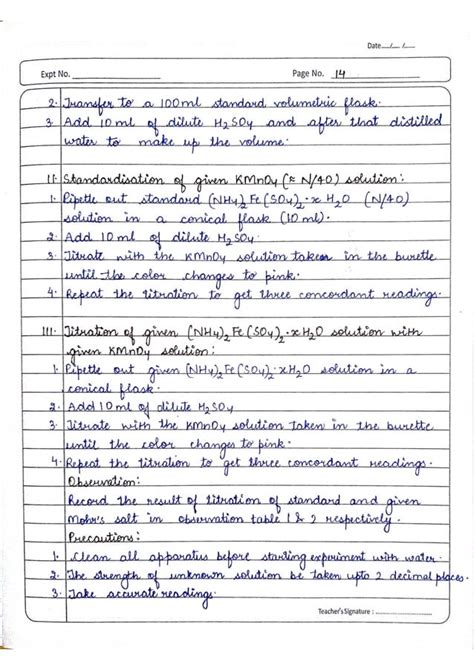 Date___/___/___
Expt No. ___________ Page No. 14
2. Transfer to a 100ml standard volumetric flask.
3. Add 10 ml of dilute H₂SO₄ and after that distilled
water to make up the volume.
II. Standardisation of given KMnO₄ (≈ N/40) solution:
1. Pipette out standard (NH₄)₂ Fe(SO₄)₂·x H₂O (N/40)
solution in a conical flask (10 ml).
2. Add 10 ml of dilute H₂SO₄.
3. Titrate with the KMnO₄ solution taken in the burette
until the color changes to pink.
4. Repeat the titration to get three concordant readings.
III. Titration of given (NH₄)₂Fe(SO₄)₂·xH₂O solution with
given KMnO₄ solution:
1. Pipette out given (NH₄)₂Fe(SO₄)₂·xH₂O solution in a
conical flask.
2. Add 10 ml of dilute H₂SO₄
3. Titrate with the KMnO₄ solution taken in the burette
until the color changes to pink.
4. Repeat the titration to get three concordant readings.
Observation:
Record the result of titration of standard and given
Mohr's salt in observation table 1 & 2 respectively.
Precautions:
1. Clean all apparatus before starting experiment with water.
2. The strength of unknown solution be taken upto 2 decimal places.
3. Take accurate readings.
Teacher's Signature : ___________